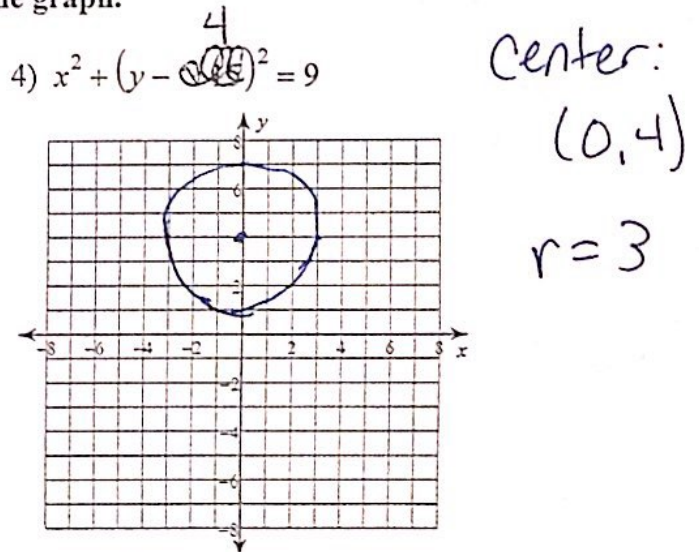 graph.
4
4) x² + (y − )² = 9
Center:
(0,4)
r = 3
y
8
6
2
-8 -6 -4 -2 2 4 6 8 x
-2
-4
-6
-8